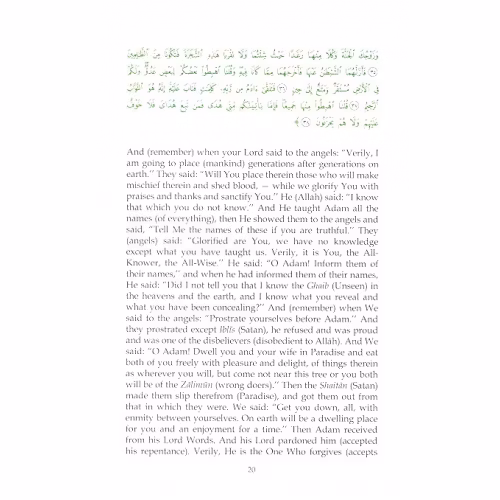 وَزَوْجُكَ ٱلْجَنَّةَ وَكُلَا مِنْهَا رَغَدًا حَيْثُ شِئْتُمَا وَلَا تَقْرَبَا هَٰذِهِ ٱلشَّجَرَةَ فَتَكُونَا مِنَ ٱلظَّٰلِمِينَ
﴿٣٥﴾ فَأَزَلَّهُمَا ٱلشَّيْطَٰنُ عَنْهَا فَأَخْرَجَهُمَا مِمَّا كَانَا فِيهِ وَقُلْنَا ٱهْبِطُوا۟ بَعْضُكُمْ لِبَعْضٍ عَدُوٌّ وَلَكُمْ
فِى ٱلْأَرْضِ مُسْتَقَرٌّ وَمَتَٰعٌ إِلَىٰ حِينٍ ﴿٣٦﴾ فَتَلَقَّىٰٓ ءَادَمُ مِن رَّبِّهِۦ كَلِمَٰتٍ فَتَابَ عَلَيْهِ إِنَّهُۥ هُوَ ٱلتَّوَّابُ
ٱلرَّحِيمُ ﴿٣٧﴾ قُلْنَا ٱهْبِطُوا۟ مِنْهَا جَمِيعًا فَإِمَّا يَأْتِيَنَّكُم مِّنِّى هُدًى فَمَن تَبِعَ هُدَاىَ فَلَا خَوْفٌ
عَلَيْهِمْ وَلَا هُمْ يَحْزَنُونَ ﴿٣٨﴾
And (remember) when your Lord said to the angels: "Verily, I
am going to place (mankind) generations after generations on
earth." They said: "Will You place therein those who will make
mischief therein and shed blood, — while we glorify You with
praises and thanks and sanctify You." He (Allâh) said: "I know
that which you do not know." And He taught Adam all the
names (of everything), then He showed them to the angels and
said, "Tell Me the names of these if you are truthful." They
(angels) said: "Glorified are You, we have no knowledge
except what you have taught us. Verily, it is You, the All-
Knower, the All-Wise." He said: "O Adam! Inform them of
their names," and when he had informed them of their names,
He said: "Did I not tell you that I know the Ghaib (Unseen) in
the heavens and the earth, and I know what you reveal and
what you have been concealing?" And (remember) when We
said to the angels: "Prostrate yourselves before Adam." And
they prostrated except Iblîs (Satan), he refused and was proud
and was one of the disbelievers (disobedient to Allâh). And We
said: "O Adam! Dwell you and your wife in Paradise and eat
both of you freely with pleasure and delight, of things therein
as wherever you will, but come not near this tree or you both
will be of the Zâlimûn (wrong doers)." Then the Shaitân (Satan)
made them slip therefrom (Paradise), and got them out from
that in which they were. We said: "Get you down, all, with
enmity between yourselves. On earth will be a dwelling place
for you and an enjoyment for a time." Then Adam received
from his Lord Words. And his Lord pardoned him (accepted
his repentance). Verily, He is the One Who forgives (accepts
20